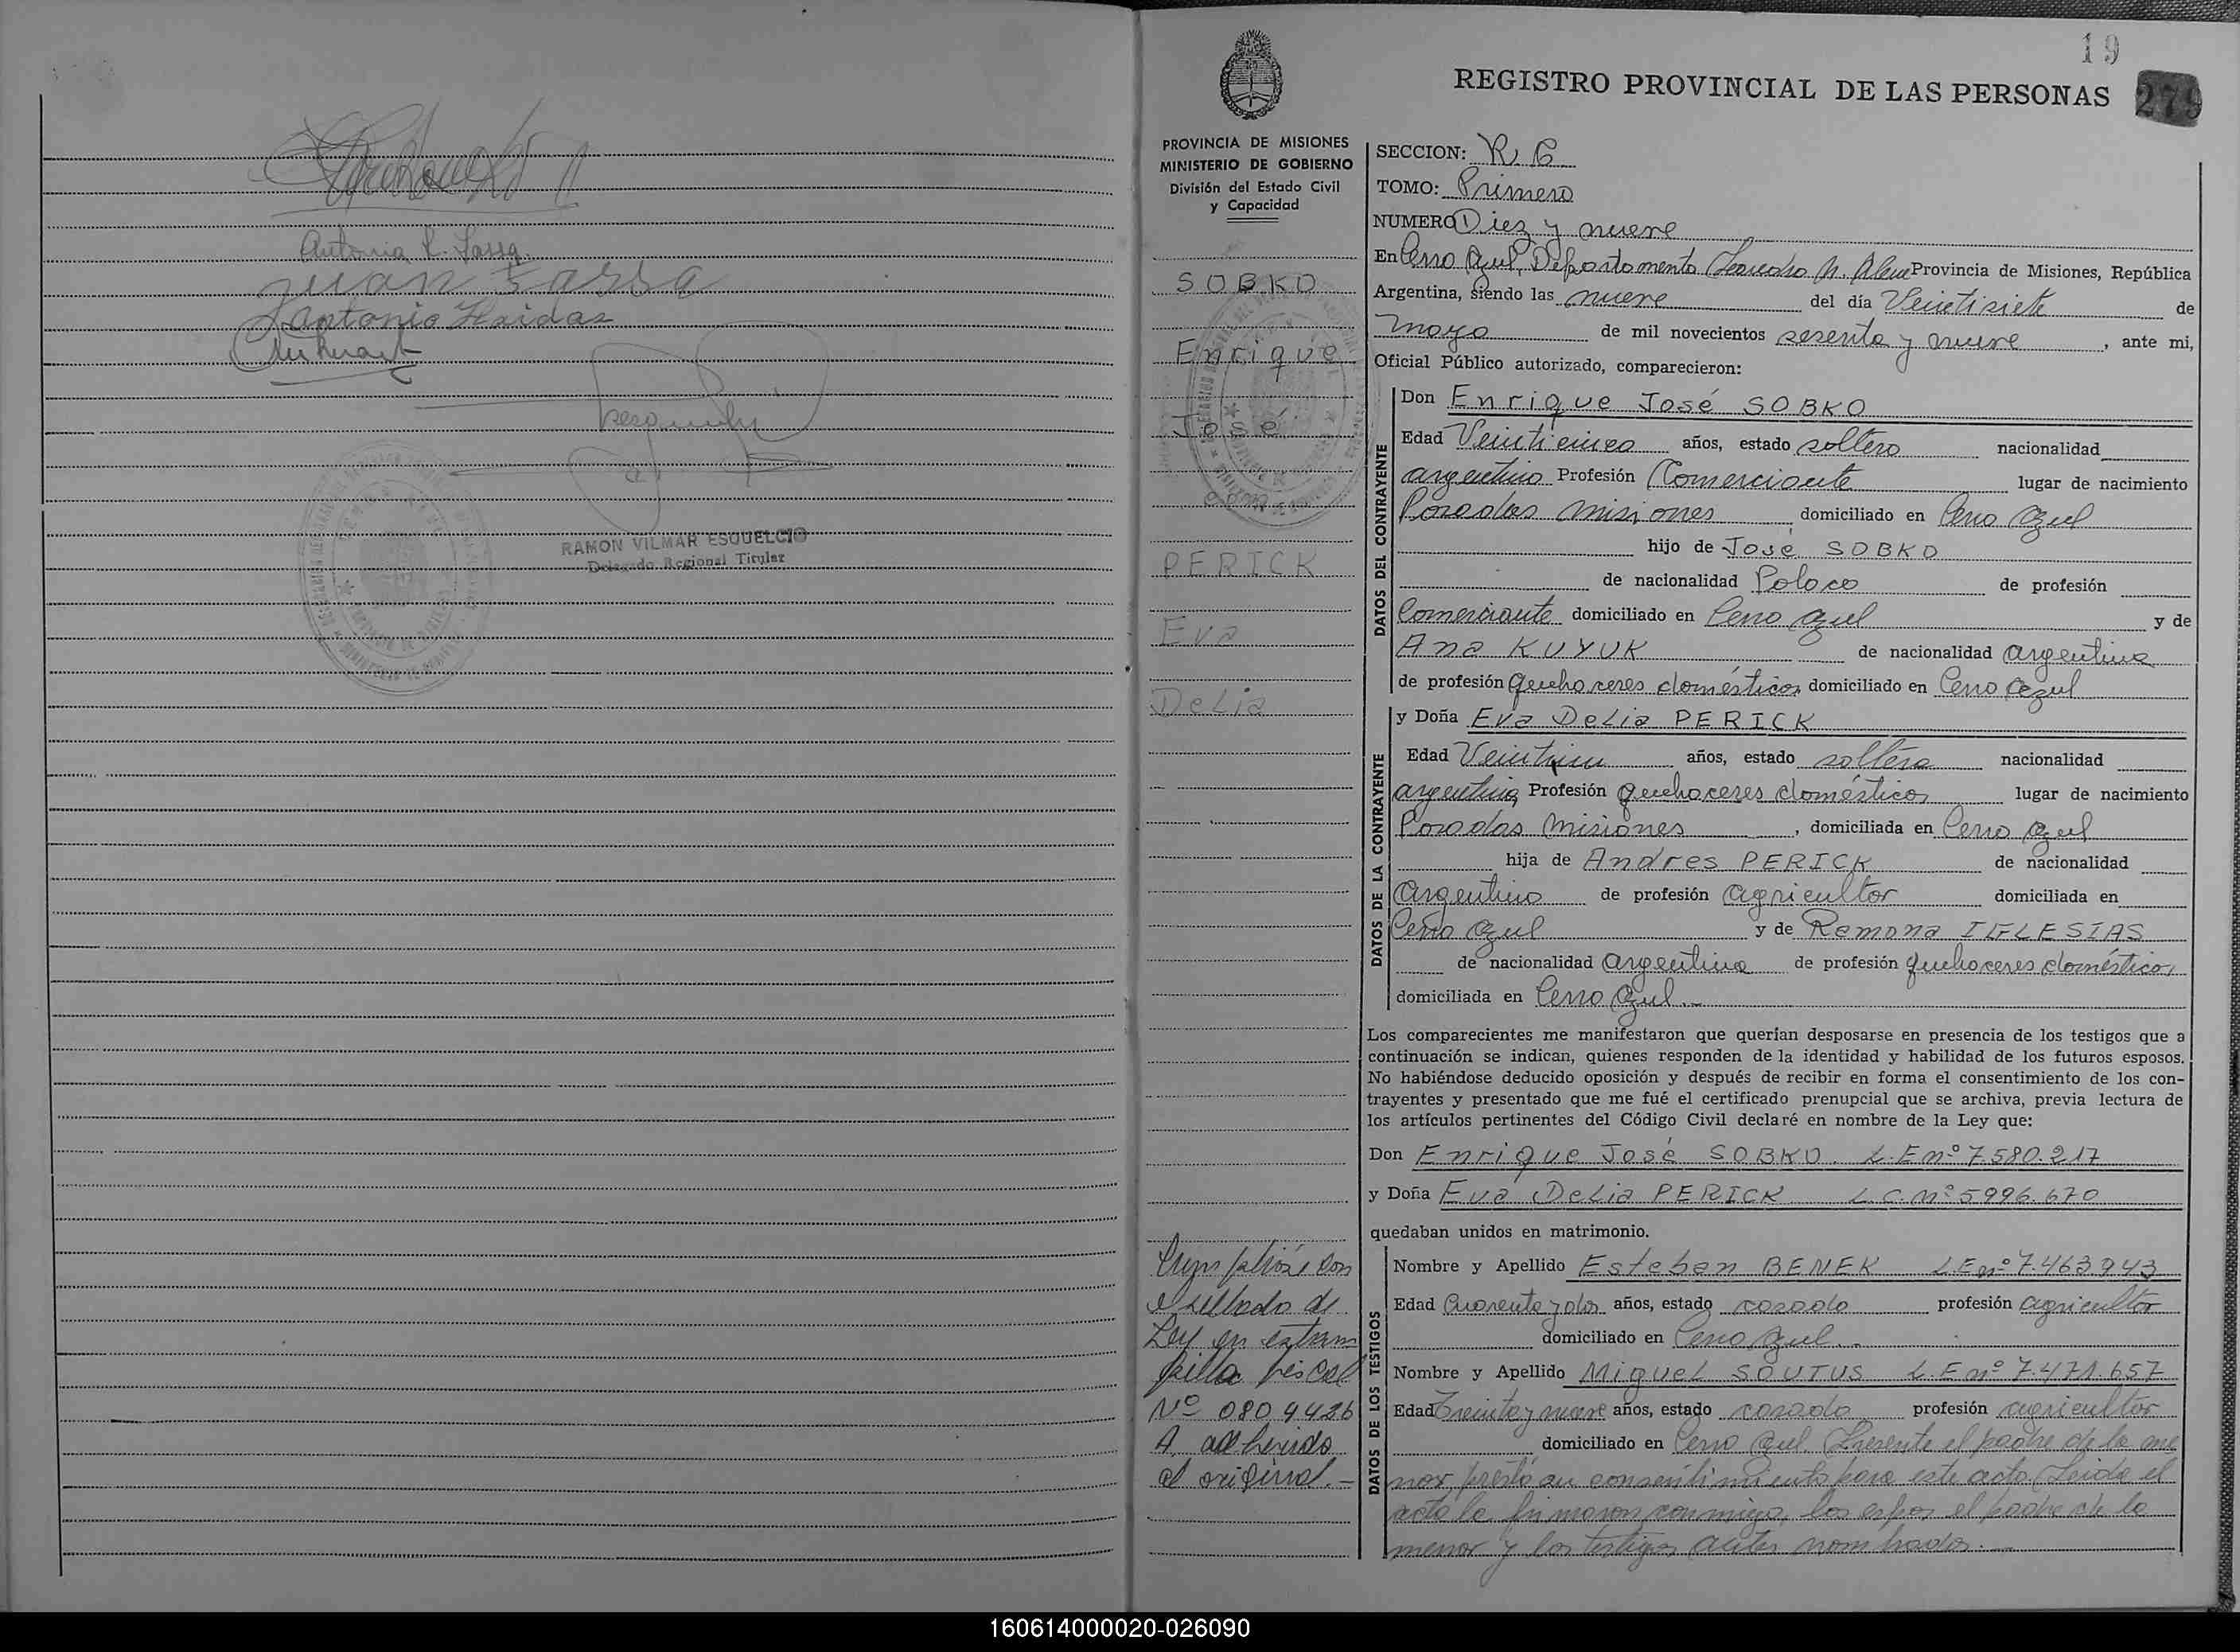 Antonia L. Sassa
Juan Sassa
Antonio Haidar
RAMON VILMAR ESQUELCIO
Delegado Regional Titular
19
REGISTRO PROVINCIAL DE LAS PERSONAS
279
PROVINCIA DE MISIONES
MINISTERIO DE GOBIERNO
División del Estado Civil
y Capacidad
SOBKO
Enrique
José
con
PERICK
Eva
Delia
el sellado de
Ley en estam
pilla fiscal
Nº 0804426
A adherido
al original.-
SECCION: R. C
TOMO: Primero
NUMERO Diez y nueve
En Cerro Azul, Departamento Leandro N. Alem Provincia de Misiones, República
Argentina, siendo las nueve del día Veintisiete de
mayo de mil novecientos sesenta y nueve, ante mi,
Oficial Público autorizado, comparecieron:
DATOS DEL CONTRAYENTE
Don Enrique José SOBKO
Edad Veinticinco años, estado soltero nacionalidad
argentino Profesión Comerciante lugar de nacimiento
Posadas Misiones domiciliado en Cerro Azul
hijo de José SOBKO
de nacionalidad Polaco de profesión
Comerciante domiciliado en Cerro Azul y de
Ana KUYUK de nacionalidad argentina
de profesión quehaceres domésticos domiciliado en Cerro Azul
DATOS DE LA CONTRAYENTE
y Doña Eva Delia PERICK
Edad Veintiun años, estado soltera nacionalidad
argentina Profesión quehaceres domésticos lugar de nacimiento
Posadas Misiones, domiciliada en Cerro Azul
hija de Andres PERICK de nacionalidad
Argentino de profesión agricultor domiciliada en
Cerro Azul y de Ramona IGLESIAS
de nacionalidad argentina de profesión quehaceres domésticos
domiciliada en Cerro Azul.-
Los comparecientes me manifestaron que querían desposarse en presencia de los testigos que a
continuación se indican, quienes responden de la identidad y habilidad de los futuros esposos.
No habiéndose deducido oposición y después de recibir en forma el consentimiento de los con-
trayentes y presentado que me fué el certificado prenupcial que se archiva, previa lectura de
los artículos pertinentes del Código Civil declaré en nombre de la Ley que:
Don Enrique José SOBKO. L.E nº 7.580.217
y Doña Eva Delia PERICK L.C. Nº 5996.670
quedaban unidos en matrimonio.
DATOS DE LOS TESTIGOS
Nombre y Apellido Esteban BENEK L.E nº 7.463943
Edad Cuarenta y dos años, estado casado profesión agricultor
domiciliado en Cerro Azul.-
Nombre y Apellido Miguel SOUTUS L.E nº 7.471.657
Edad Treinta y nueve años, estado casado profesión agricultor
domiciliado en Cerro Azul. Presente el padre de la me
nor, prestó su consentimiento para este acto. Leida el
acta la firmaron conmigo, los espos el padre de la
menor y los testigos antes nombrados.-
160614000020-026090